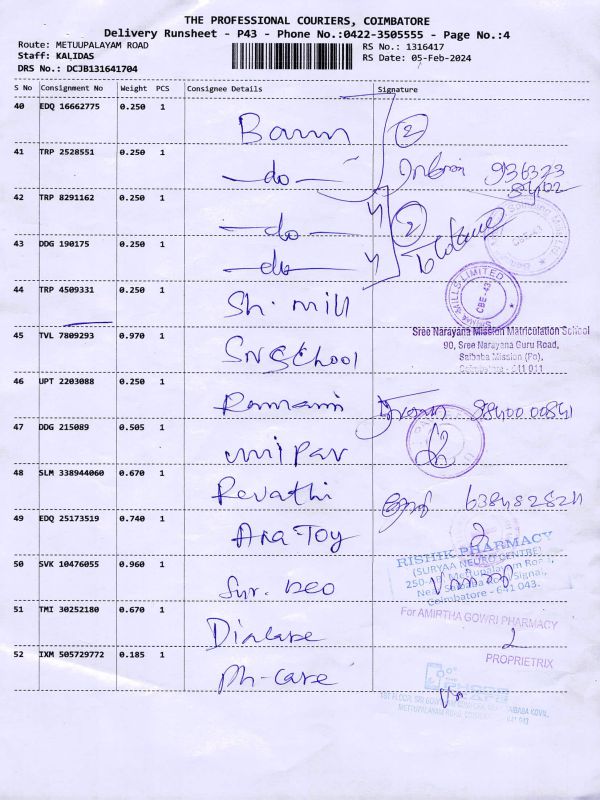 THE PROFESSIONAL COURIERS, COIMBATORE
Delivery Runsheet - P43 - Phone No.:0422-3505555 - Page No.:4
Route: METUUPALAYAM ROAD
Staff: KALIDAS
DRS No.: DCJB131641704
RS No.: 1316417
RS Date: 05-Feb-2024
S No Consignment No Weight PCS Consignee Details Signature
40 EDQ 16662775 0.250 1
2
41 TRP 2528551 0.250 1
do
936323
42 TRP 8291162 0.250 1
do
2
43 DDG 190175 0.250 1
do
44 TRP 4509331 0.250 1
Sh. mill
MILLS LIMITED
CBE-43
45 TVL 7809293 0.970 1
SN School
Sree Narayana Mission Matriculation School
90, Sree Narayana Guru Road,
Saibaba Mission (Po),
Coimbatore - 641 011
46 UPT 2203088 0.250 1
Ramani
47 DDG 215089 0.505 1
unipar
48 SLM 338944060 0.670 1
Revathi
49 EDQ 25173519 0.740 1
Ara Toy
50 SVK 10476055 0.960 1
Sur. DEO
RISHIK PHARMACY
(SURYAA NEURO CENTRE)
Coimbatore - 641 043.
51 TMI 30252180 0.670 1
Dialase
For AMIRTHA GOWRI PHARMACY
PROPRIETRIX
52 IXM 505729772 0.185 1
Ph-care